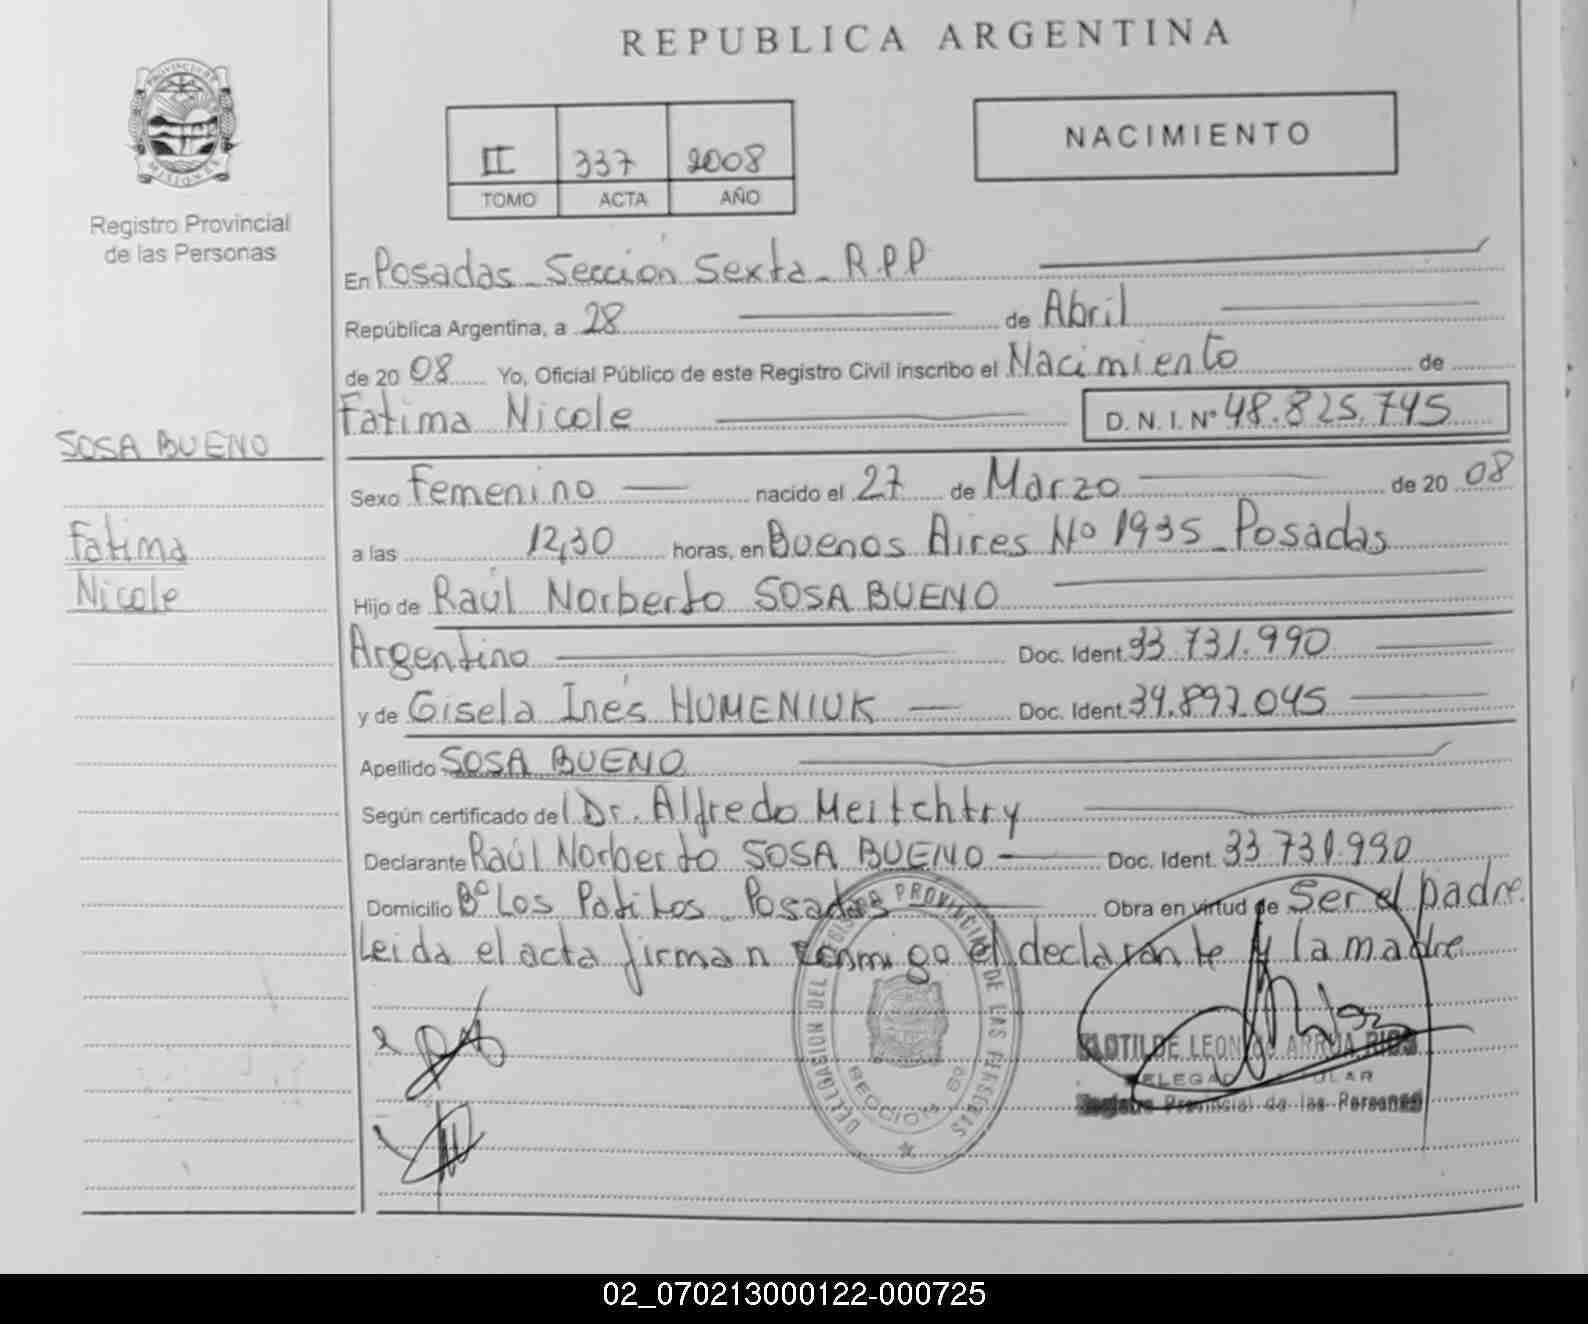 REPUBLICA ARGENTINA
PROVINCIA DE MISIONES
Registro Provincial
de las Personas
II 337 2008
TOMO ACTA AÑO
NACIMIENTO
En Posadas - Sección Sexta - R.P.P
República Argentina, a 28 de Abril
de 20 08 Yo, Oficial Público de este Registro Civil inscribo el Nacimiento de
Fatima Nicole D. N. I. Nº 48.825.745
SOSA BUENO
Fatima
Nicole
Sexo Femenino nacido el 27 de Marzo de 20 08
a las 12,30 horas, en Buenos Aires Nº 1935 - Posadas
Hijo de Raúl Norberto SOSA BUENO
Argentino Doc. Ident. 33.731.990
y de Gisela Inés HUMENIUK Doc. Ident. 34.897.045
Apellido SOSA BUENO
Según certificado del Dr. Alfredo Meitchtry
Declarante Raúl Norberto SOSA BUENO Doc. Ident. 33.731.990
Domicilio Bº Los Patitos - Posadas Obra en virtud de Ser el padre.
Leida el acta firman conmigo el declarante y la madre
DELEGACION DEL REGISTRO PROVINCIAL DE LAS PERSONAS
SECCION 6º
CLOTILDE ARRUA RIOS
DELEGADO TITULAR
Registro Provincial de las Personas
02_070213000122-000725